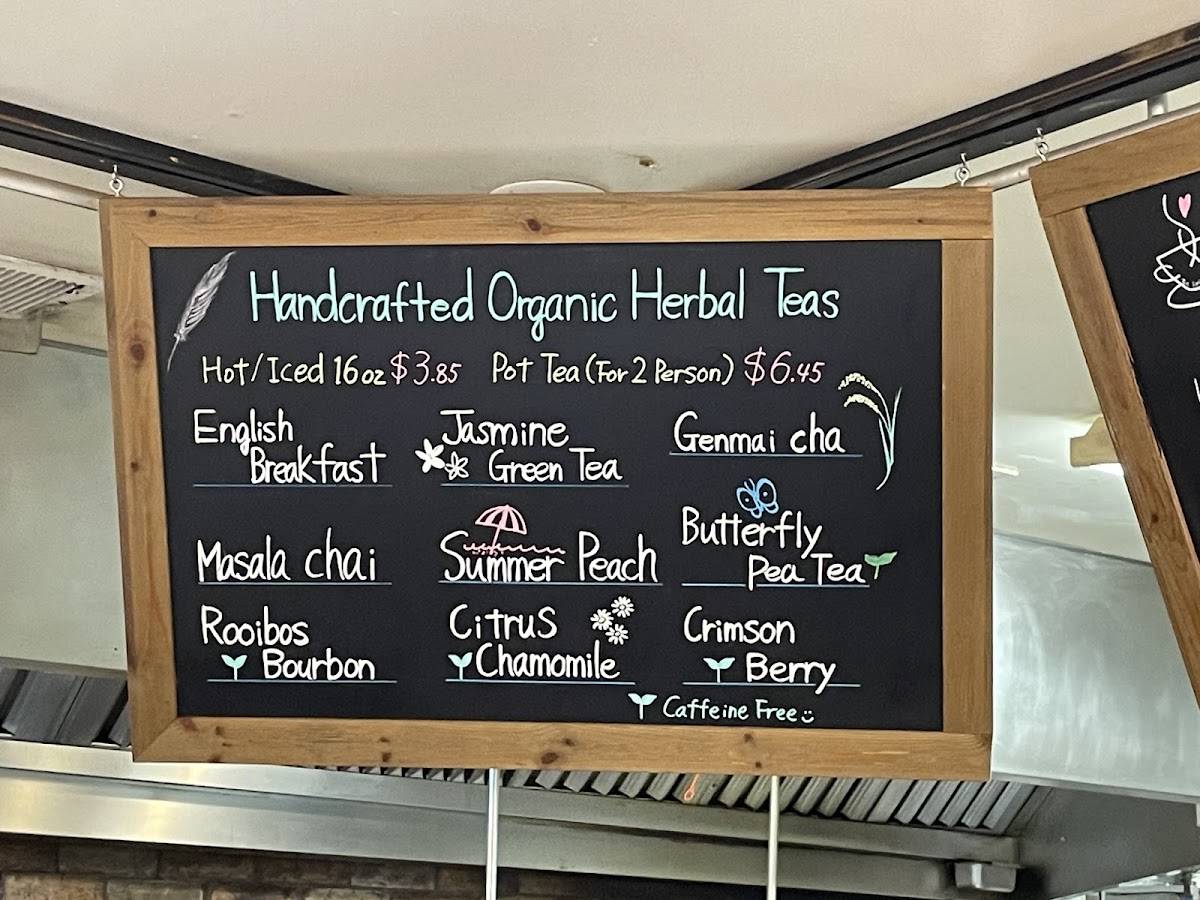 Handcrafted Organic Herbal Teas
Hot/Iced 16oz $3.85 Pot Tea (For 2 Person) $6.45
English
Breakfast
Jasmine
Green Tea
Genmai cha
Masala chai
Summer Peach
Butterfly
Pea Tea
Rooibos
Bourbon
Citrus
Chamomile
Crimson
Berry
Caffeine Free